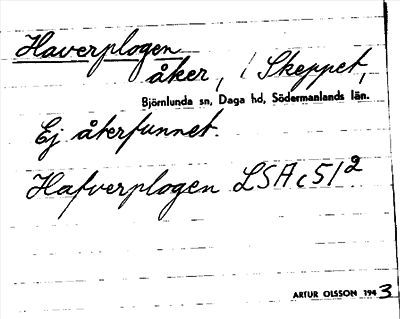 Haverplogen
åker, i Skeppet,
Björnlunda sn, Daga hd, Södermanlands län.
Ej återfunnet.
Hafverplogen LSA c 5/2
ARTUR OLSSON 1943